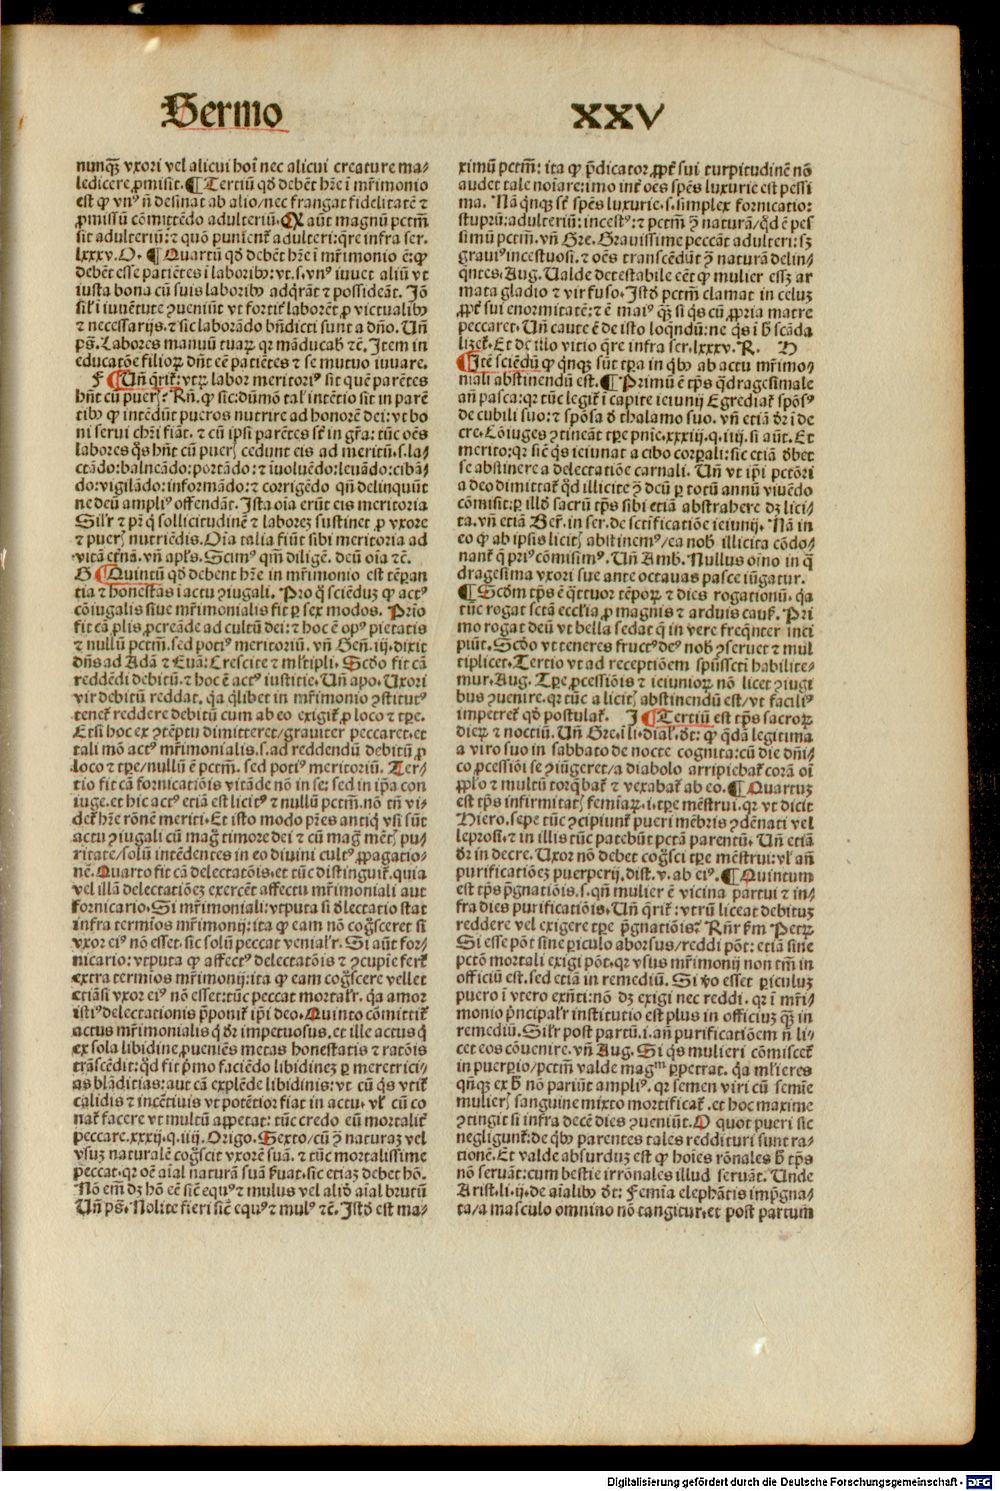 Sermo XXV
nunq̃ vxori vel alicui hoĩ nec alicui creature ma⸗
ledicere ꝓmisit. ¶ Tertiũ qd̃ debẽt hr̃e ĩ mr̃imonio
est ꝙ vnꝰ ñ desinat ab alio/nec frangat fidelitatẽ ⁊
ꝓmissũ cõmittẽdo adulteriũ. Q aũt magnũ pctm̃
sit adulteriũ: ⁊ quõ puniẽnt̃ adulteri: q̃re infra ser.
lxxxv. O. ¶ Quartũ qd̃ debẽt hr̃e ĩ mr̃imonio ẽ: ꝙ
debẽt esse patiẽtes ĩ laboribꝰ: vt. s. vnꝰ iuvet aliũ vt
iusta bona cũ suis laboribꝰ adq̃rãt ⁊ possideãt. Iõ
sil̃ ĩ iuuẽtute ꝯueniũt vt fortit̃ laborẽt ꝓ victualibꝰ
⁊ necessarijs. ⁊ sic laborãdo bñdicti sunt a dño. Uñ
ps̃. Labores manuũ tuaꝝ qr mãducab̃ ⁊c̃. Item in
educatõe filioꝝ dñt eẽ patiẽtes ⁊ se mutuo iuuare.
F ¶ Uñ q̃rit̃: vtꝝ labor meritoriꝰ sit quẽ parẽtes
hñt cũ puerꝭ? Rñ. ꝙ sic: dũmõ tal̃ intẽtio sit in parẽ
tibꝰ ꝙ intẽdũt pueros nutrire ad honorẽ dei: vt bo
ni serui chr̃i fiãt. ⁊ cũ ipsi parẽtes st̃ in gr̃a: tũc oẽs
labores q̃s hñt cũ puerꝭ cedunt eis ad meritũ. s. la⸗
ctãdo: balneãdo: portãdo: ⁊ iuoluẽdo: leuãdo: cibã⸗
do: vigilãdo: informãdo: ⁊ corrigẽdo qñ delinquũt
ne deũ ampliꝰ offendãt. Ista oĩa erũt eis meritoria
Sil̃r ⁊ pr̃ q̃ sollicitudinẽ ⁊ laborez sustinet ꝓ vxore
⁊ puerꝭ nutriẽdis. Oĩa talia fiũt sibi meritoria ad
vitã et̃nã. vñ apl̃s. Scimꝰ qm̃ diligẽ. deũ oĩa ⁊c̃.
G ¶ Quintũ qd̃ debent hr̃e in mr̃imonio est tẽperan
tia ⁊ honestas ĩ actu ꝯiugali. Pro q̃ sciẽduz ꝙ actꝰ
cõiugalis siue mr̃imonialis fit ꝑ sex modos. Prĩo
fit cã ꝓlis ꝓcreãde ad cultũ dei: ⁊ hoc ẽ opꝰ pietatis
⁊ nullũ pctm̃. sed potiꝰ meritoriũ. vñ Geñ. iij. dixit
dñs ad Adã ⁊ Euã: Crescite ⁊ ml̃tipli. Scd̃o fit cã
reddẽdi debitũ. ⁊ hoc ẽ actꝰ iustitie. Uñ apo. Uxori
vir debitũ reddat. q̃a q̃libet in mr̃imonio ꝯstitutꝰ
tenet̃ reddere debitũ cum ab eo exigit̃ ꝓ loco ⁊ tp̃e.
Etsi hoc ex ꝯtẽptu dimitteret/grauiter peccaret. et
tali mõ actꝰ mr̃imonialis. s. ad reddendũ debitũ ꝓ
loco ⁊ tp̃e/nullũ ẽ pctm̃. sed potiꝰ meritoriũ. Ter⸗
tio fit cã fornicatiõis vitãde nõ in se: sed in ip̃a con
iuge. et hic actꝰ etiã est licitꝰ ⁊ nullũ pctm̃. nõ tñ vi⸗
det̃ hr̃e rõnẽ meriti. Et isto modo pr̃es antiq̃ vsi sũt
actu ꝯiugali cũ mag̃ timore dei ⁊ cũ mag̃ mẽtꝭ pu⸗
ritate/solũ intẽdentes in eo diuini cultꝰ ꝓpagatio⸗
nẽ. Quarto fit cã delectatõis. et tũc distinguit̃. quia
vel illã delectatiõez exercẽt affectu mr̃imoniali aut
fornicario. Si mr̃imoniali: vtputa si d̃lectatio stat
infra termĩos mr̃imonij: ita ꝙ eam cog̃sceret si
vxor eiꝰ nõ esset. sic solũ peccat venial̃r. Si aũt for⸗
nicario: vtputa ꝙ affectꝰ delectatõis ⁊ ꝯcupie fert̃
extra termĩos mr̃imonij: ita ꝙ eam cog̃scere vellet
etiãsi vxor eiꝰ nõ esset: tũc peccat mortal̃r. q̃a amor
istiꝰ delectationis p̃ponit̃ ip̃i deo. Quinto cõmittit̃
actus mr̃imonialis q̃ dr̃ impetuosus. et ille actus q̃
ex sola libidine ꝓueniẽs metas honestatis ⁊ ratõis
trãscẽdit: q̃d fit pr̃mo faciẽdo libidinez ꝑ meretrici⸗
as blãditias: aut cã explẽde libidinis: vt cũ q̃s vtit̃
calidis ⁊ incẽtiuis vt potẽtior fiat in actu. vl̃ cũ co
nat̃ facere vt multũ appetat: tũc credo eũ mortalit̃
peccare. xxxij. q. iiij. Origo. Sexto/cũ ꝯ̃ naturaz vel
vsuz naturalẽ cog̃scit vxorẽ suã. ⁊ tũc mortalissime
peccat. qr oẽ aĩal naturã suã s̃uat. sic etiaz debet hõ.
Nõ em̃ dz hõ eẽ sic̃ equꝰ ⁊ mulus vel aliq̃d aĩal brutũ
Uñ ps̃. Nolite fieri sic̃ equꝰ ⁊ mulꝰ ⁊c̃. Istd̃ est ma⸗
ximũ pctm̃: ita ꝙ p̃dicator ꝓpt̃ sui turpitudinẽ nõ
audet tale noĩare: imo int̃ oẽs sp̃es luxurie est pessi
ma. Nã q̃nqꝫ st̃ sp̃es luxurie. s. simplex fornicatio:
stuprũ: adulteriũ: incestꝰ: ⁊ pctm̃ ꝯ̃ naturã/q̃d ẽ pes
simũ pctm̃. vñ Gre. Grauissime peccãt adulteri: sꝫ
grauiꝰ incestuosi. ⁊ oẽs transcẽdũt ꝯ̃ naturã delin⸗
q̃ntes. Aug. Ualde detestabile eẽt ꝙ mulier essz ar
mata gladio ⁊ vir fuso. Istd̃ pctm̃ clamat in celuz
ꝓpt̃ sui enormitatẽ: ⁊ ẽ maiꝰ q̃ꝫ si q̃s cũ ꝓpria matre
peccaret. Uñ caute ẽ de isto loq̃ndũ: ne q̃s ĩ h̃ scãda
lizet̃. Et de illo vitio q̃re infra ser. lxxxv. R. H
¶ Itẽ sciẽdũ ꝙ q̃nqꝫ sũt tp̃a in q̃bꝰ ab actu mr̃imo⸗
niali abstinendũ est. ¶ Primũ ẽ tp̃s q̃dragesimale
añ pasca: qr tũc legit̃ ĩ capite ieiunij Egrediat̃ spõsꝰ
de cubili suo: ⁊ spõsa d̃ thalamo suo. vñ etiã dr̃ ĩ de
cre. Cõiuges ꝯtineãt tp̃e pnĩe. xxxiij. q. iiij. si aũt. Et
merito: qr sic̃ q̃s ieiunat a cibo corꝑali: sic etiã d̃bet
se abstinere a delectatiõe carnali. Uñ vt ip̃i pctõri
a deo dimittat̃ q̃d illicite ꝯ̃ deũ ꝑ totũ annũ viuẽdo
cõmisit: ꝑ illd̃ sacrũ tp̃s sibi etiã abstrahere dꝫ lici⸗
ta. vñ etiã Ber̃. in ser. de sctificatiõe ieiunij. Nã in
eo ꝙ ab ipsis licitꝭ abstinemꝰ/ea nob̃ illicita cõdo⸗
nant̃ q̃ priꝰ cõmisimꝰ. Uñ Amb. Nullus oĩno in q̃
dragesima vxori sue ante octauas pasce iũgatur.
¶ Scd̃m tp̃s ẽ q̃ttuor tẽpoꝝ ⁊ dies rogationũ. q̃a
tũc rogat sctã eccl̃ia ꝓ magnis ⁊ arduis caus̃. Pri
mo rogat deũ vt bella sedat q̃ in vere freq̃nter inci
piũt. Scd̃o vt teneres fructꝰ deꝰ nob̃ ꝯseruet ⁊ mul
tiplicet. Tertio vt ad receptiõem spũssct̃i habilite⸗
mur. Aug. Tp̃e ꝓcessiõis ⁊ ieiunioꝝ nõ licet ꝯiugi
bus ꝯuenire. qr tũc a licitꝭ abstinendũ est/vt faciliꝰ
impetret̃ qd̃ postulat̃. I ¶ Tertiũ est tp̃s sacroꝝ
dieꝝ ⁊ noctiũ. Uñ Gre. ĩ li. dial̃. dt̃: ꝙ q̃dã legitima
a viro suo in sabbato de nocte cognita: cũ die dñi⸗
co ꝓcessiõi se ꝯiũgeret/a diabolo arripiebat̃ corã oĩ
ppl̃o ⁊ multũ torq̃bat̃ ⁊ vexabat̃ ab eo. ¶ Quartuz
est tp̃s infirmitatꝭ femĩaꝝ. i. tp̃e mẽstrui. qr vt dicit
Hiero. sepe tũc ꝯcipiunt̃ pueri mẽbris ꝯdẽnati vel
leprosi. ⁊ in illis tũc patebũt pctã parentũ. Uñ etiã
dr̃ in decre. Uxor nõ debet cog̃sci tp̃e mẽstrui: vl̃ añ
purificatiõez puerperij. dist. v. ab eiꝰ. ¶ Quintum
est tp̃s p̃gnatiõis. s. qñ mulier ẽ vicina partui ⁊ in⸗
fra dies purificatiõis. Uñ q̃rit̃: vtrũ liceat debituz
reddere vel exigere tp̃e p̃gnatiõis? Rñr km̃ Petꝝ
Si esse põt sine ꝑiculo aborsus/reddi põt: etiã sine
pctõ mortali exigi põt. qr vsus mr̃imonij non tm̃ in
officiũ est. sed etiã in remediũ. Si ṽo esset ꝑiculuz
puero ĩ vtero exñti: nõ dꝫ exigi nec reddi. qr ĩ mr̃i⸗
monio p̃ncipal̃r institutio est plus in officiuz q̃ꝫ in
remediũ. Sil̃r post partũ. i. añ purificatiõem ñ li⸗
cet eos cõuenire. vñ Aug. Si q̃s mulieri cõmiscet̃
in puerꝑio/pctm̃ valde magᵐ ꝑpetrat. q̃a ml̃ieres
q̃ñqꝫ ex h̃ nõ pariũt ampliꝰ. qr semen viri cũ semĩe
mulierꝭ sanguine mixto mortificat̃. et hoc maxime
ꝯtingit si infra decẽ dies ꝯueniũt. O quot pueri sic
negligunt̃: de q̃bꝰ parentes tales reddituri sunt ra⸗
tionẽ. Et valde absurduz est ꝙ hoĩes rõnales h̃ tp̃s
nõ seruãt: cum bestie irrõnales illud seruãt. Unde
Arist. li. ij. de aĩalibꝰ dt̃: Femĩa elephãtis imp̃gna⸗
ta/a masculo omnino nõ tangitur. et post partum
Digitalisierung gefördert durch die Deutsche Forschungsgemeinschaft - DFG